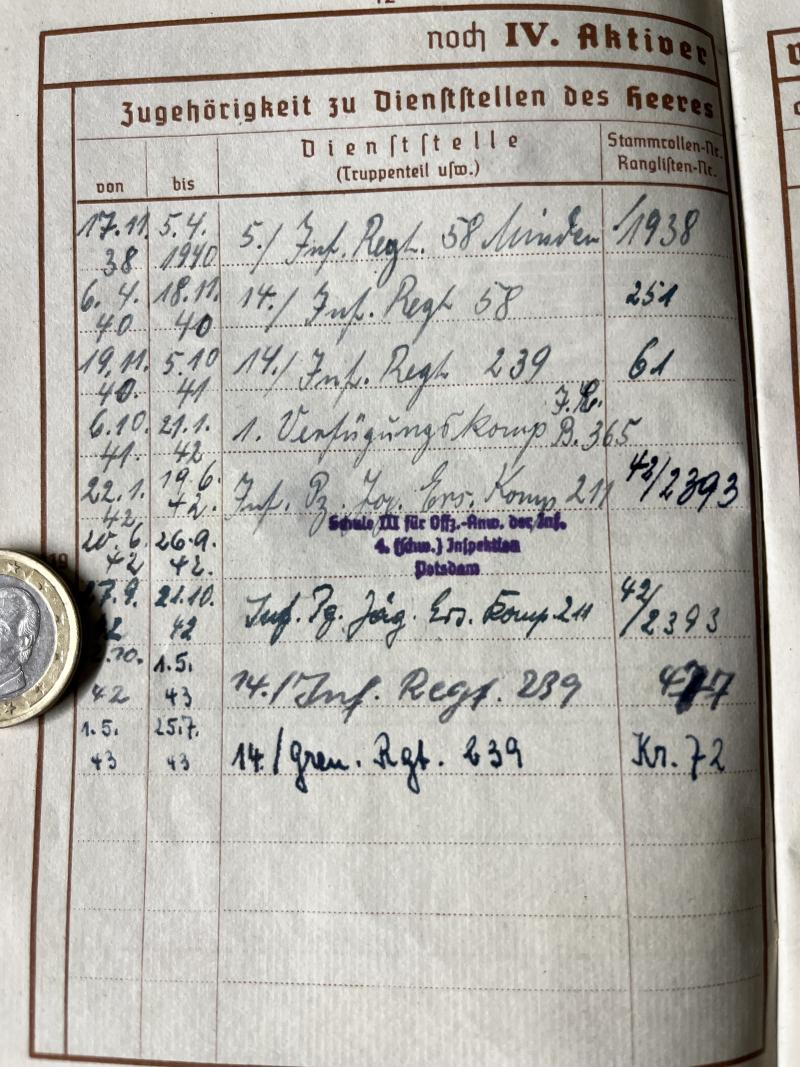 noch IV. Aktiver
Zugehörigkeit zu Dienststellen des Heeres
von bis Dienststelle Stammrollen-Nr.
(Truppenteil usw.) Ranglisten-Nr.
17.11. 5.4. 5./ Inf. Regt. 58 Minden 1938
38 1940
6. 4. 18.11. 14./ Inf. Regt 58 251
40 40
19.11. 5.10 14./ Inf. Regt. 239 61
40. 41
6.10. 21.1. 1. Verfügungskomp B. 365
41. 42
22.1. 19.6. Inf. Pz. Ers. Komp 211 42/2393
42 42.
Schule III für Offz.-Anw. der Inf.
20.6. 26.9. 4. (schw.) Inspektion
42 42. Potsdam
7.9. 21.10. Inf. Pg. Jäg. Ers. Komp. 211 42/2393
2 42
.10. 1.5. 14./ Inf. Regt. 239
42 43
1.5. 25.7. 14./ Gren. Rgt. 239 Kr. 72
43 43